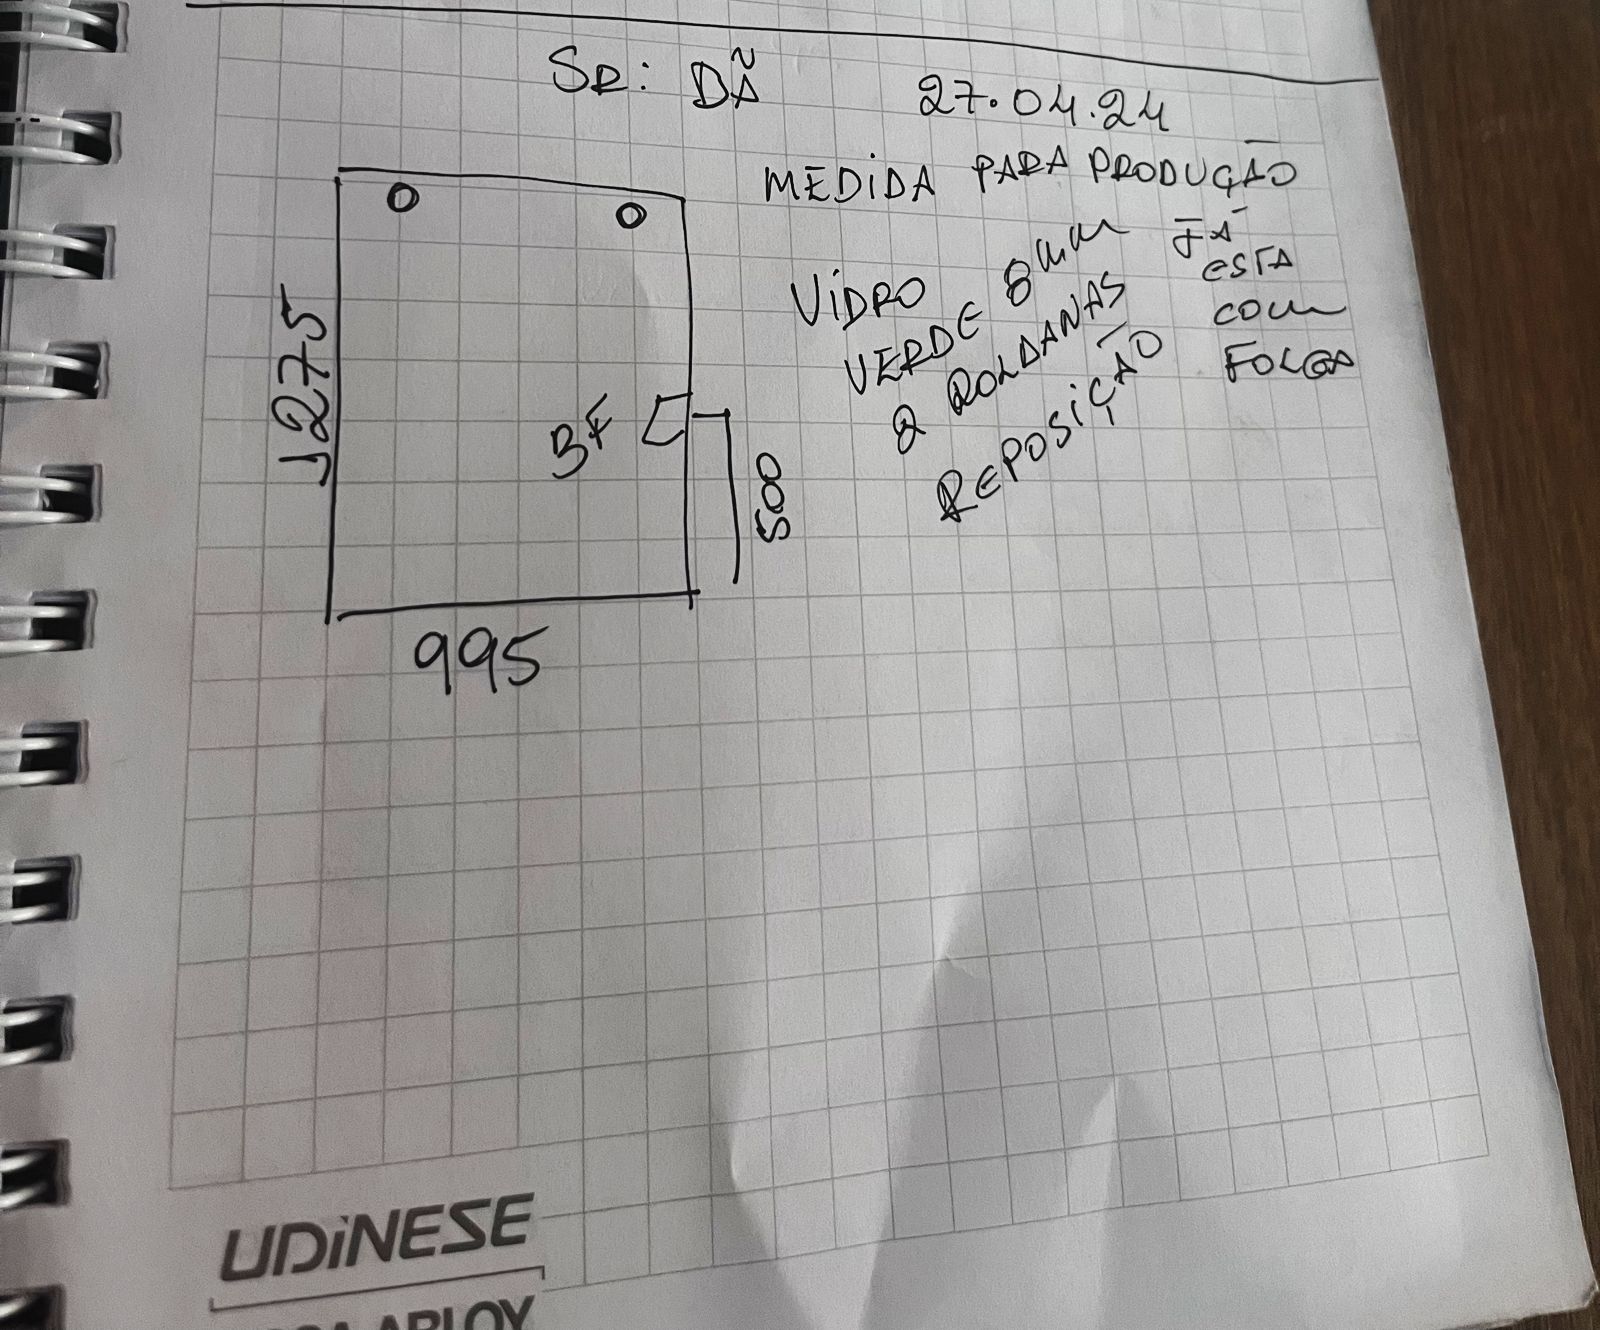 SR: DÃ
27.04.24
MEDIDA PARA PRODUÇÃO
JÁ
ESTA
COM
FOLGA
VIDRO
VERDE 8mm
2 ROLDANAS
REPOSIÇÃO
1275
BF
500
995
UDINESE
ABLOY